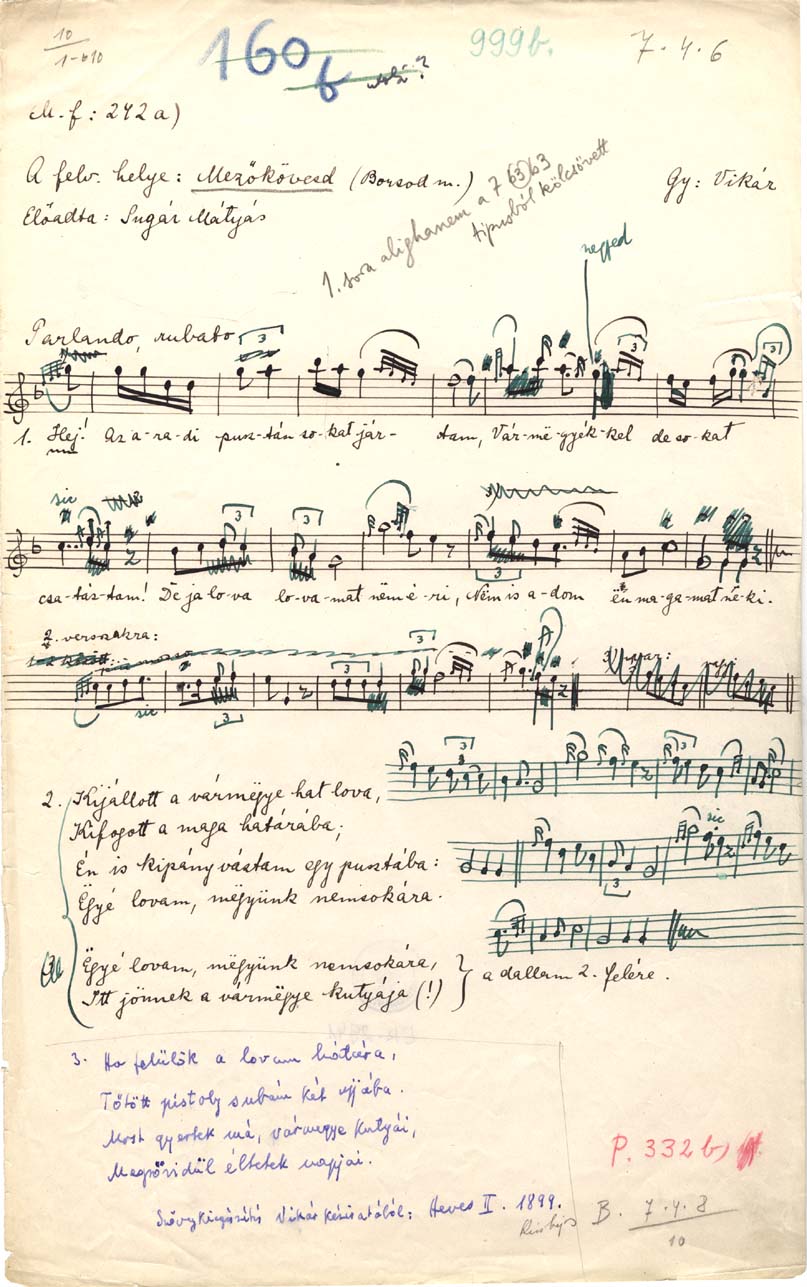 10
1-610
160
b
999b.
7.4.6
M.f: 242a)
A felv. helye: Mezőkövesd (Borsod m.)
Gy: Vikár
Előadta: Sugár Mátyás
1. sora alighanem a 7 (63) 63
típusból kölcsövett
negyed
Parlando, rubato
3
3
3
1. Hej! Az a-ra-di pusz-tán so-kat jár- tam, Vár-më-gyék-kel de so-kat
sic
3
3
3
csa-táz-tam! De ja lo-va lo-va-mat nëm é-ri, Nëm is a-dom ën ma-ga-mat në-ki.
2. versszakra:
3
sic
3
3
3
2. Kijállott a vármëgye hat lova,
Kifogott a maga határába;
Én is kipányvástam egy pusztába:
Ëgyé lovam, mëgyünk nemsokára.
sic
3
Ëgyé lovam, mëgyünk nemsokára,
Itt jönnek a vármëgye kutyája (!)
a dallam 2. felére.
3. Ha felülök a lovam hátára,
Tőtött pistoly subám két ujjába.
Most gyertek má, vármegye kutyái,
Megrövidül éltetek napjai.
Szövegkiegészítés Vikár kéziratából: Heves II. 1899.
P. 332 b)
B. 7.4.8
10